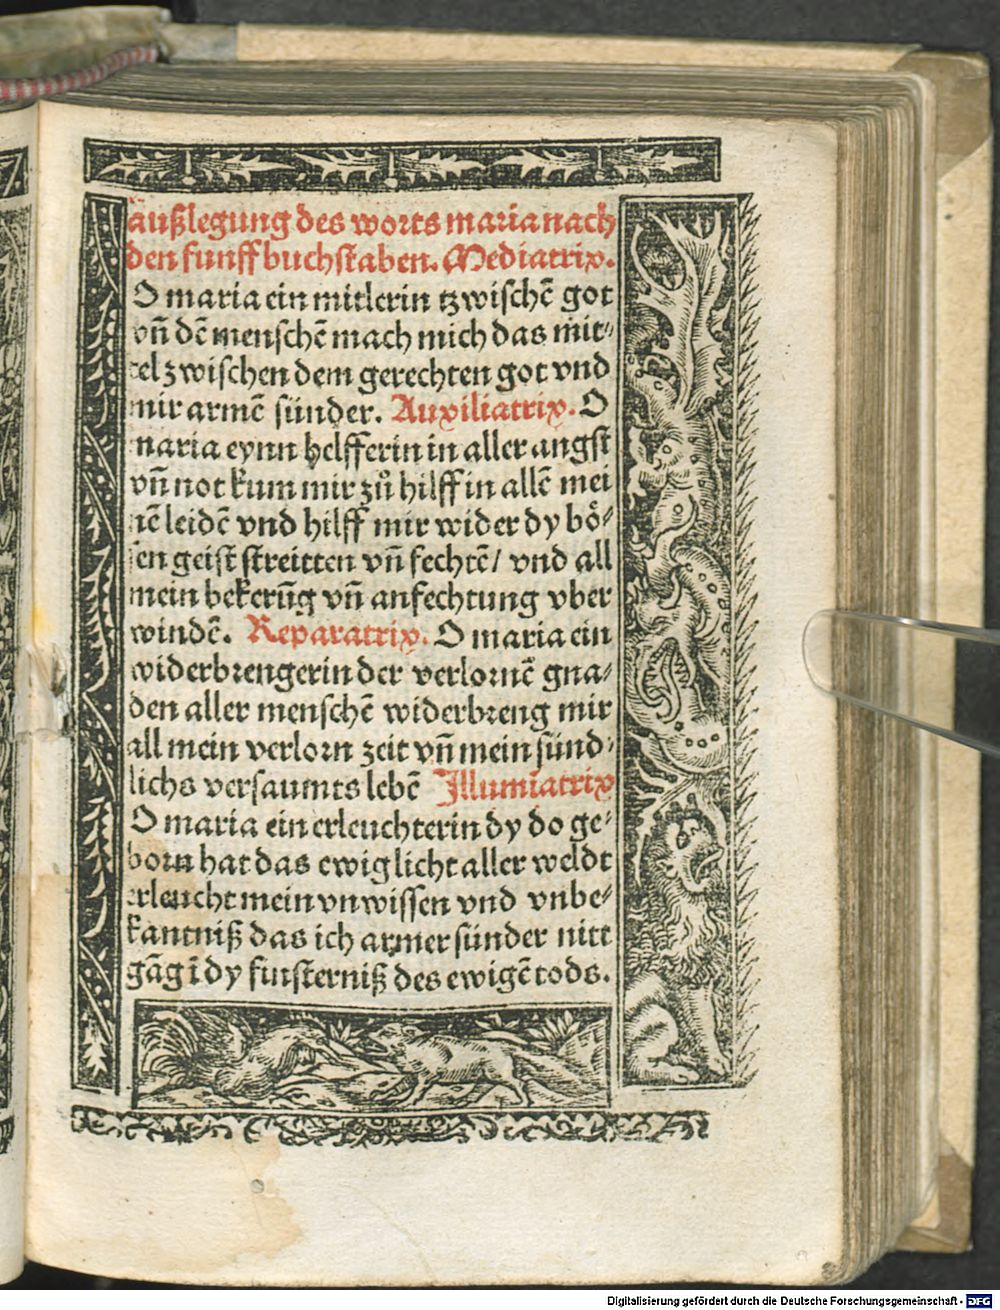 außlegung des worts maria nach
den funff buchstaben. Mediatrix.
O maria ein mitlerin tzwischē got
vn̄ dē menschē mach mich das mit⸗
tel zwischen dem gerechten got vnd
mir armē sünder. Auxiliatrix. O
maria eynn helfferin in aller angst
vn̄ not kum mir zů hilff in allē mei
nē leidē vnd hilff mir wider dy bö⸗
sen geist streitten vn̄ fechtē/ vnd all
mein bekerūg vn̄ anfechtung vber
windē. Reparatrix. O maria ein
widerbrengerin der verlornē gna⸗
den aller menschē widerbreng mir
all mein verlorn zeit vn̄ mein sünd⸗
lichs versaumts lebē Illumiatrix
O maria ein erleuchterin dy do ge⸗
born hat das ewig licht aller weldt
erleucht mein vnwissen vnd vnbe⸗
kantniß das ich armer sünder nitt
gāg ī dy finsterniß des ewigē tods.
Digitalisierung gefördert durch die Deutsche Forschungsgemeinschaft - DFG